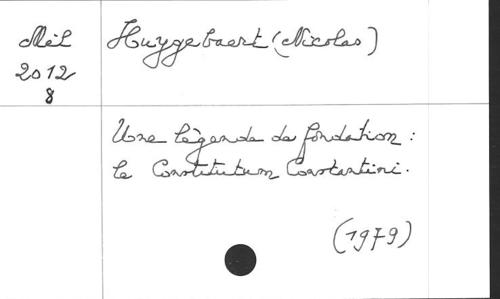 Mél
2012
8
Huygebaert (Nicolas)
Une légende de fondation :
le Constitutum Constantini.
(1979)